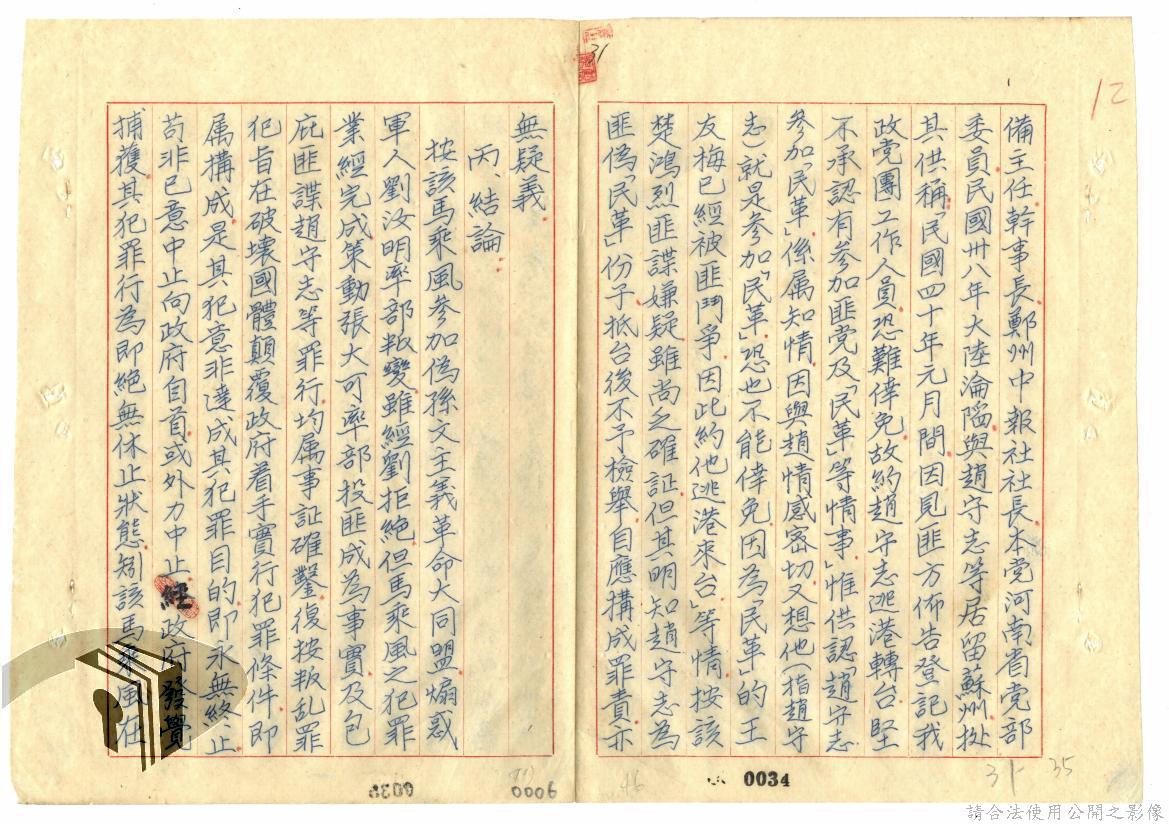 備主任幹事長鄭州中報社社長本党河南省党部
委員民國卅八年大陸淪陷與趙守志等居留蘇州
其供稱「民國四十年元月間因見匪方佈告登記我
政党團工作人員恐難倖免故約趙守志逃港轉台堅
不承認有參加匪党及「民革」等情事」惟供認「趙守志
參加「民革」係属知情因與趙情感密切又想他(指趙守
志)就是參加「民革」恐也不能倖免因為「民革」的王
友梅已經被匪鬥爭因此約他逃港來台」等情按該
楚鴻烈匪諜嫌疑雖尚乏確証但其明知趙守志為
匪偽「民革」份子抵台後不予檢舉自應構成罪責亦
無疑義
丙、結論
按該馬乘風參加偽孫文主義革命大同盟煽惑
軍人劉汝明率部叛變雖經劉拒絕但馬乘風之犯罪
業經完成策動張大可率部投匪成為事實及包
庇匪諜趙守志等罪行均属事証確鑿復按叛乱罪
犯旨在破壞國體顛覆政府着手實行犯罪條件即
属構成是其犯意非達成其犯罪目的即永無終止
苟非已意中止向政府自首或外力中止經政府發覺
捕獲其犯罪行為即絕無休止狀態矧該馬乘風在
31
12
0034
0006
35
請合法使用公開之影像